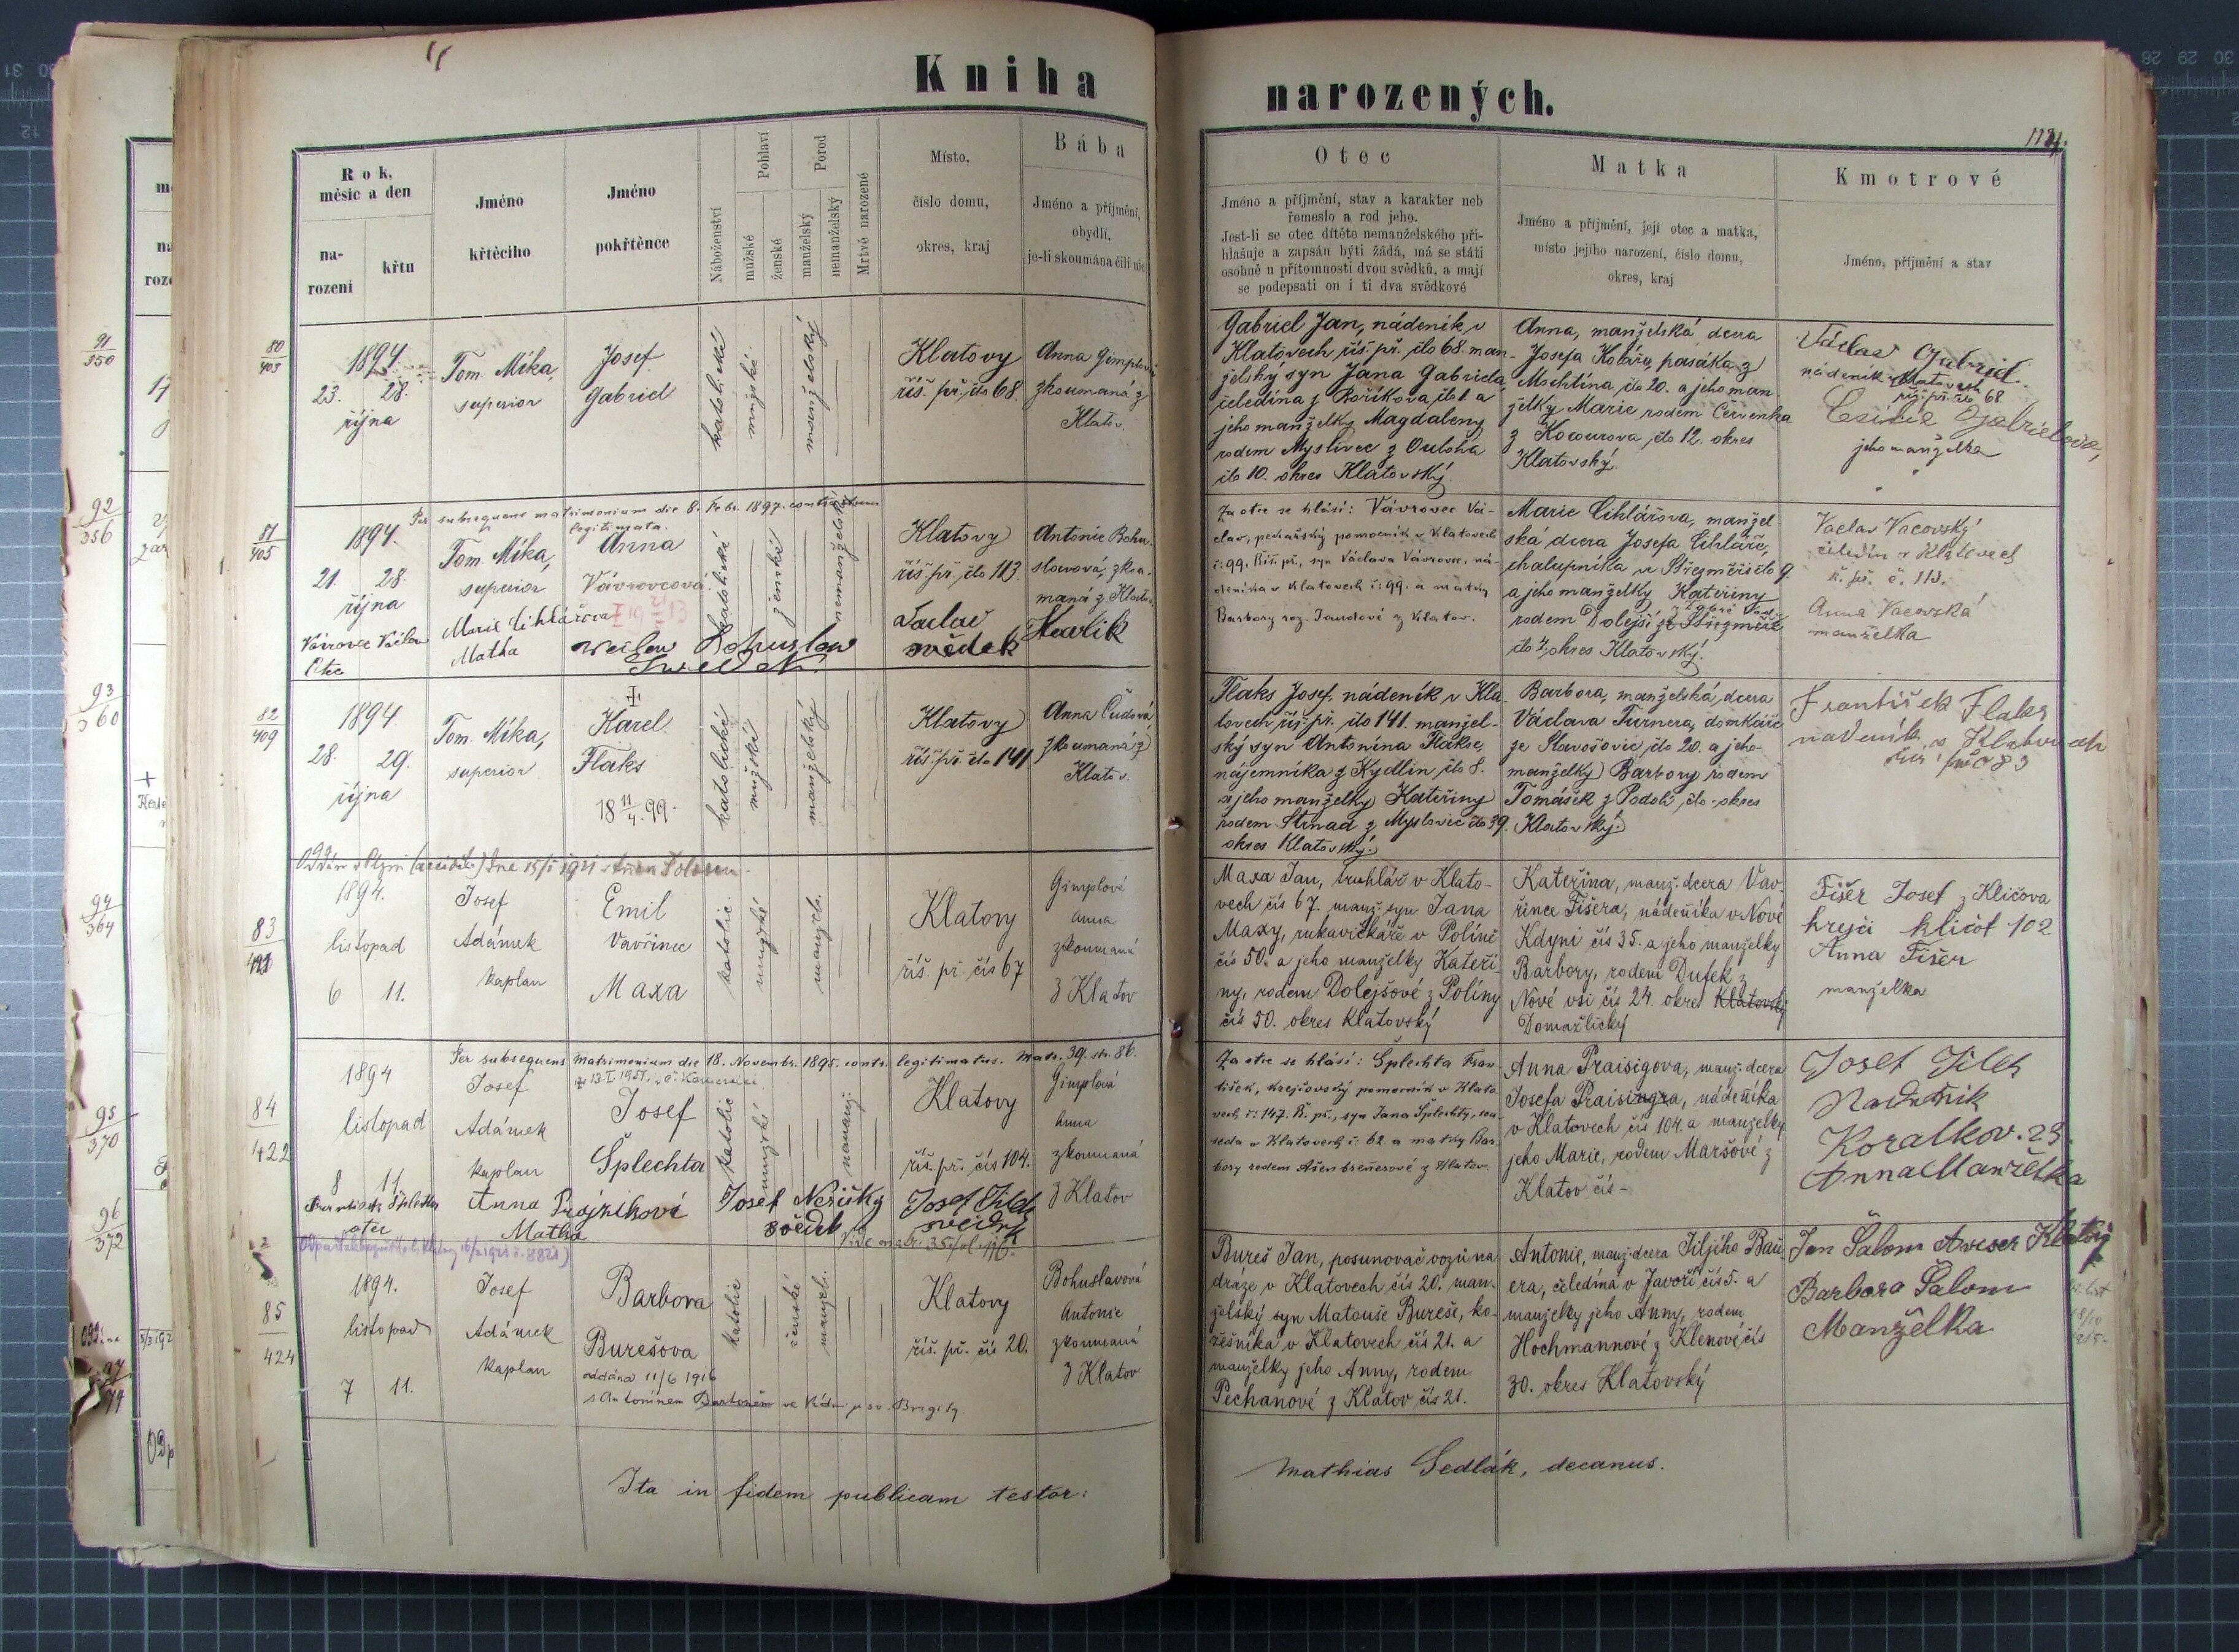 Kniha
narozených.
Rok,
měsíc a den
na-
rození
křtu
Jméno
křtěcího
Jméno
pokřtěnce
Náboženství
Pohlaví
mužské
ženské
Porod
manželský
nemanželský
Mrtvě narozené
Místo,
číslo domu,
okres, kraj
Bába
Jméno a příjmění,
obydlí,
je-li skoumána čili nic
Otec
Jméno a příjmění, stav a karakter neb
řemeslo a rod jeho.
Jest-li se otec dítěte nemanželského při-
hlašuje a zapsán býti žádá, má se státi
osobně u přítomnosti dvou svědků, a mají
se podepsati on i ti dva svědkové
Matka
Jméno a příjmění, její otec a matka,
místo jejího narození, číslo domu,
okres, kraj
Kmotrové
Jméno, příjmění a stav
80
403
1894.
23. 28.
října
Tom. Míka,
superior
Josef
Gabriel
katolické
mužské
manželský
Klatovy
říš. př. čílo 68.
Anna Gimplová
zkoumaná z
Klatov.
Gabriel Jan, nádeník v
Klatovech říš. př. čílo 68. man-
želský syn Jana Gabriela,
čeledína z Bořikova, čílo 1. a
jeho manželky Magdaleny
rodem Myslivec z Ouloha
čílo 10. okres Klatovský.
Anna, manželská dcera
Josefa Koláře, pasáka z
Mochtína čílo 20. a jeho man-
želky Marie rodem Červenka
z Kocourova, čílo 12. okres
Klatovský.
Václav Gabriel
nádeník v Klatovech
říš. př. čílo 68
Gabrielova,
jeho manželka
81
405
Per subsequens matrimonium die 8. Febr. 1897. contractum
legitimata.
1894.
21. 28.
října
Tom. Míka,
superior
Anna
Vávrovcová
katolické
ženské
nemanželský
Klatovy
říš. př. čílo 113.
Antonie Bohu-
slavová, zkou-
maná z Klatov.
Vávrovec Václav
Otec
Marie Cihlářova
Matka
Bohuslav
Václav Havlík
svědek
Za otce se hlásí: Vávrovec Vá-
clav, pekařský pomocník v Klatovech
č: 99. Říš. př., syn Václava Vávrovce, ná-
deníka v Klatovech č: 99. a matky
Barbory roz. Jandové z Klatov.
Marie Cihlářova, manžel-
ská dcera Josefa Cihláře,
chalupníka ve Střezměři čílo 9.
a jeho manželky Kateřiny
rodem Dolejší ze Střezměře
čílo 4, okres Klatovský.
Vaclav Vacovský
čeledín v Klatovech
ř. př. č. 113.
Anna Vacovská
manželka
82
409
1894
28. 29.
října
Tom. Míka,
superior
Karel
Flaks
18 11/4. 99.
katolické
mužské
manželský
Klatovy
říš. př. čílo 141
Anna Čudová
zkoumaná z
Klatov.
Flaks Josef, nádeník v Kla-
tovech říš. př. čílo 141. manžel-
ský syn Antonína Flakse,
nájemníka z Kydlin čílo 8.
a jeho manželky Kateřiny
rodem Strnad z Myslovic čílo 39.
okres Klatovský.
Barbora, manželská dcera
Václava Turnera, domkáře
ze Slavošovic čílo 20. a jeho
manželky Barbory rodem
Tomášek z Podolí, čílo - okres
Klatovský.
František Flaks
nadeník v Klatovech
83
83
1894.
listopad
6 11.
Josef
Adámek
kaplan
Emil
Vavřinec
Maxa
katolic.
mužské
manžels.
Klatovy
říš. př. čís 67
Gimplové
Anna
zkoumaná
z Klatov
Maxa Jan, truhlář v Klato-
vech čís 67. manž. syn Jana
Maxy, rukavičkáře v Políně
čís 50. a jeho manželky Kateři-
ny, rodem Dolejšové z Políny
čís 50. okres Klatovský
Kateřina, manž. dcera Vav-
řince Fišera, nádeníka v Nové
Kdyni čís 35. a jeho manželky
Barbory, rodem Dufek z
Nové vsi čís 24. okres Klatovský
Domažlický
Fišer Josef z Kličova
krejčí kličof 102
Anna Fišer
manželka
84
422
Per subsequens matrimonium die 18. Novembr. 1895. contr. legitimatus. Matr. 39. str. 86.
1894
listopad
8 11.
Josef
Adámek
kaplan
Josef
Šplechta
katolic
mužské
nemanž.
Klatovy
říš. př. čís 104.
Gimplová
Anna
zkoumaná
z Klatov
František Šplechta
otec
Anna Prajzikové
Matka
Josef Neřišky
svědek
Josef Jilek
svědek
Za otce se hlásí: Šplechta Fran-
tišek, krejčovský pomocník v Klato-
vech č: 147. Ř. př., syn Jana Šplechty, sou-
seda v Klatovech č: 62. a matky Bar-
bory rodem Ašenbrenerové z Klatov.
Anna Praisigova, manž. dcera
Josefa Praisingra, nádeníka
v Klatovech čís 104. a manželky
jeho Marie, rodem Maršové z
Klatov čís -
Josef Jilek
Nadeník
Koralkov. 23.
Anna Manželka
85
424
1894.
listopad
7 11.
Josef
Adámek
kaplan
Barbora
Burešova
oddána 11/6 1916
s Antonínem Bartoněm ve Vídni u sv. Brigity
katolic
ženské
manžel.
Klatovy
říš. př. čís 20.
Bohuslavová
Antonie
zkoumaná
z Klatov
Bureš Jan, posunovač vozů na
dráze v Klatovech čís 20. man-
želský syn Matouše Bureše, ko-
žešníka v Klatovech čís 21. a
manželky jeho Anny, rodem
Pechanové z Klatov čís 21.
Antonie, manž. dcera Jiljího Bau-
era, čeledína v Javoří čís 5. a
manželky jeho Anny, rodem
Hochmannové z Klenové čís
30. okres Klatovský
Jan Šalom Klatovy
Barbora Šalom
Manželka
Ita in fidem publicam testor:
Mathias Sedlák, decanus.
91
350
92
356
93
360
94
364
95
370
96
372